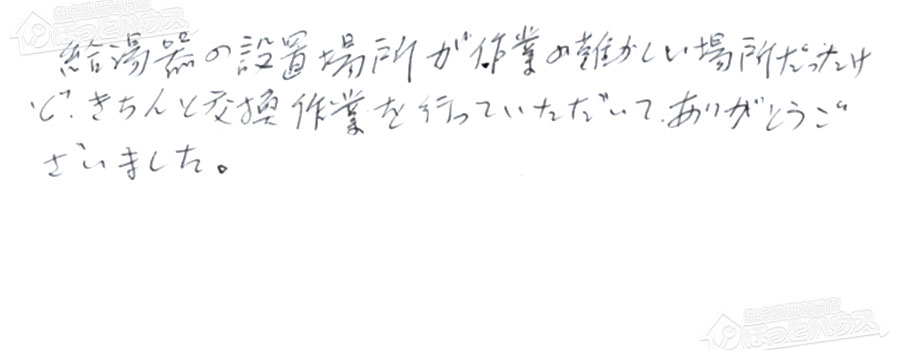 給湯器の設置場所が作業の難かしい場所だったけ
ど、きちんと交換作業を行っていただいて、ありがとうご
ざいました。
ほっとハウス
ほっとハウス